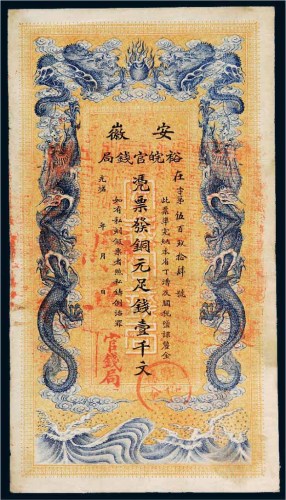 安徽
裕皖官錢局
在字第伍百玖拾肆號
此票準完納本省丁漕及關稅鹽課釐金
憑票發銅元足錢壹千文
如有私刻假票者照私鑄例治罪
光緒 年 月 日
官錢局